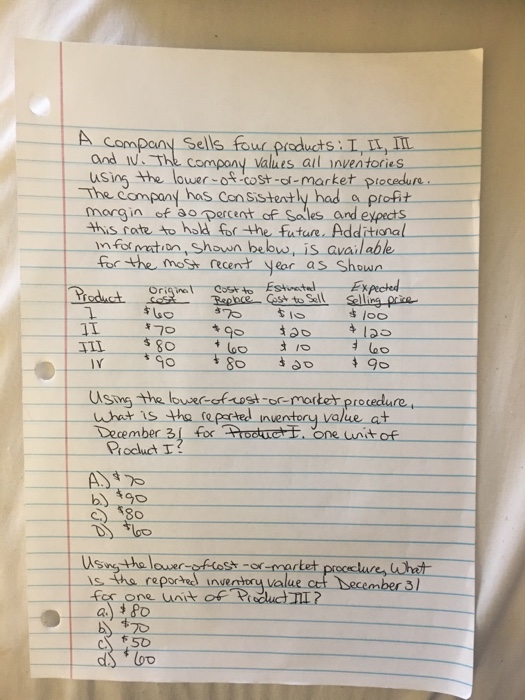 A company sells four products: I, II, III
and IV. The company values all inventories
using the lower-of-cost-or-market procedure.
The company has consistently had a profit
margin of 20 percent of sales and expects
this rate to hold for the future. Additional
information, shown below, is available
for the most recent year as shown
Product Original cost Cost to Replace Estimated Cost to Sell Expected Selling price
I $60 $70 $10 $100
II $70 $90 $20 $120
III $80 $60 $10 $60
IV $90 $80 $20 $90
Using the lower-of-cost-or-market procedure,
what is the reported inventory value at
December 31 for Product I. one unit of
Product I?
A.) $70
b.) $90
c.) $80
D.) $60
Using the lower-of-cost-or-market procedure, what
is the reported inventory value at December 31
for one unit of Product III?
a.) $80
b) $70
c) $50
d.) $60